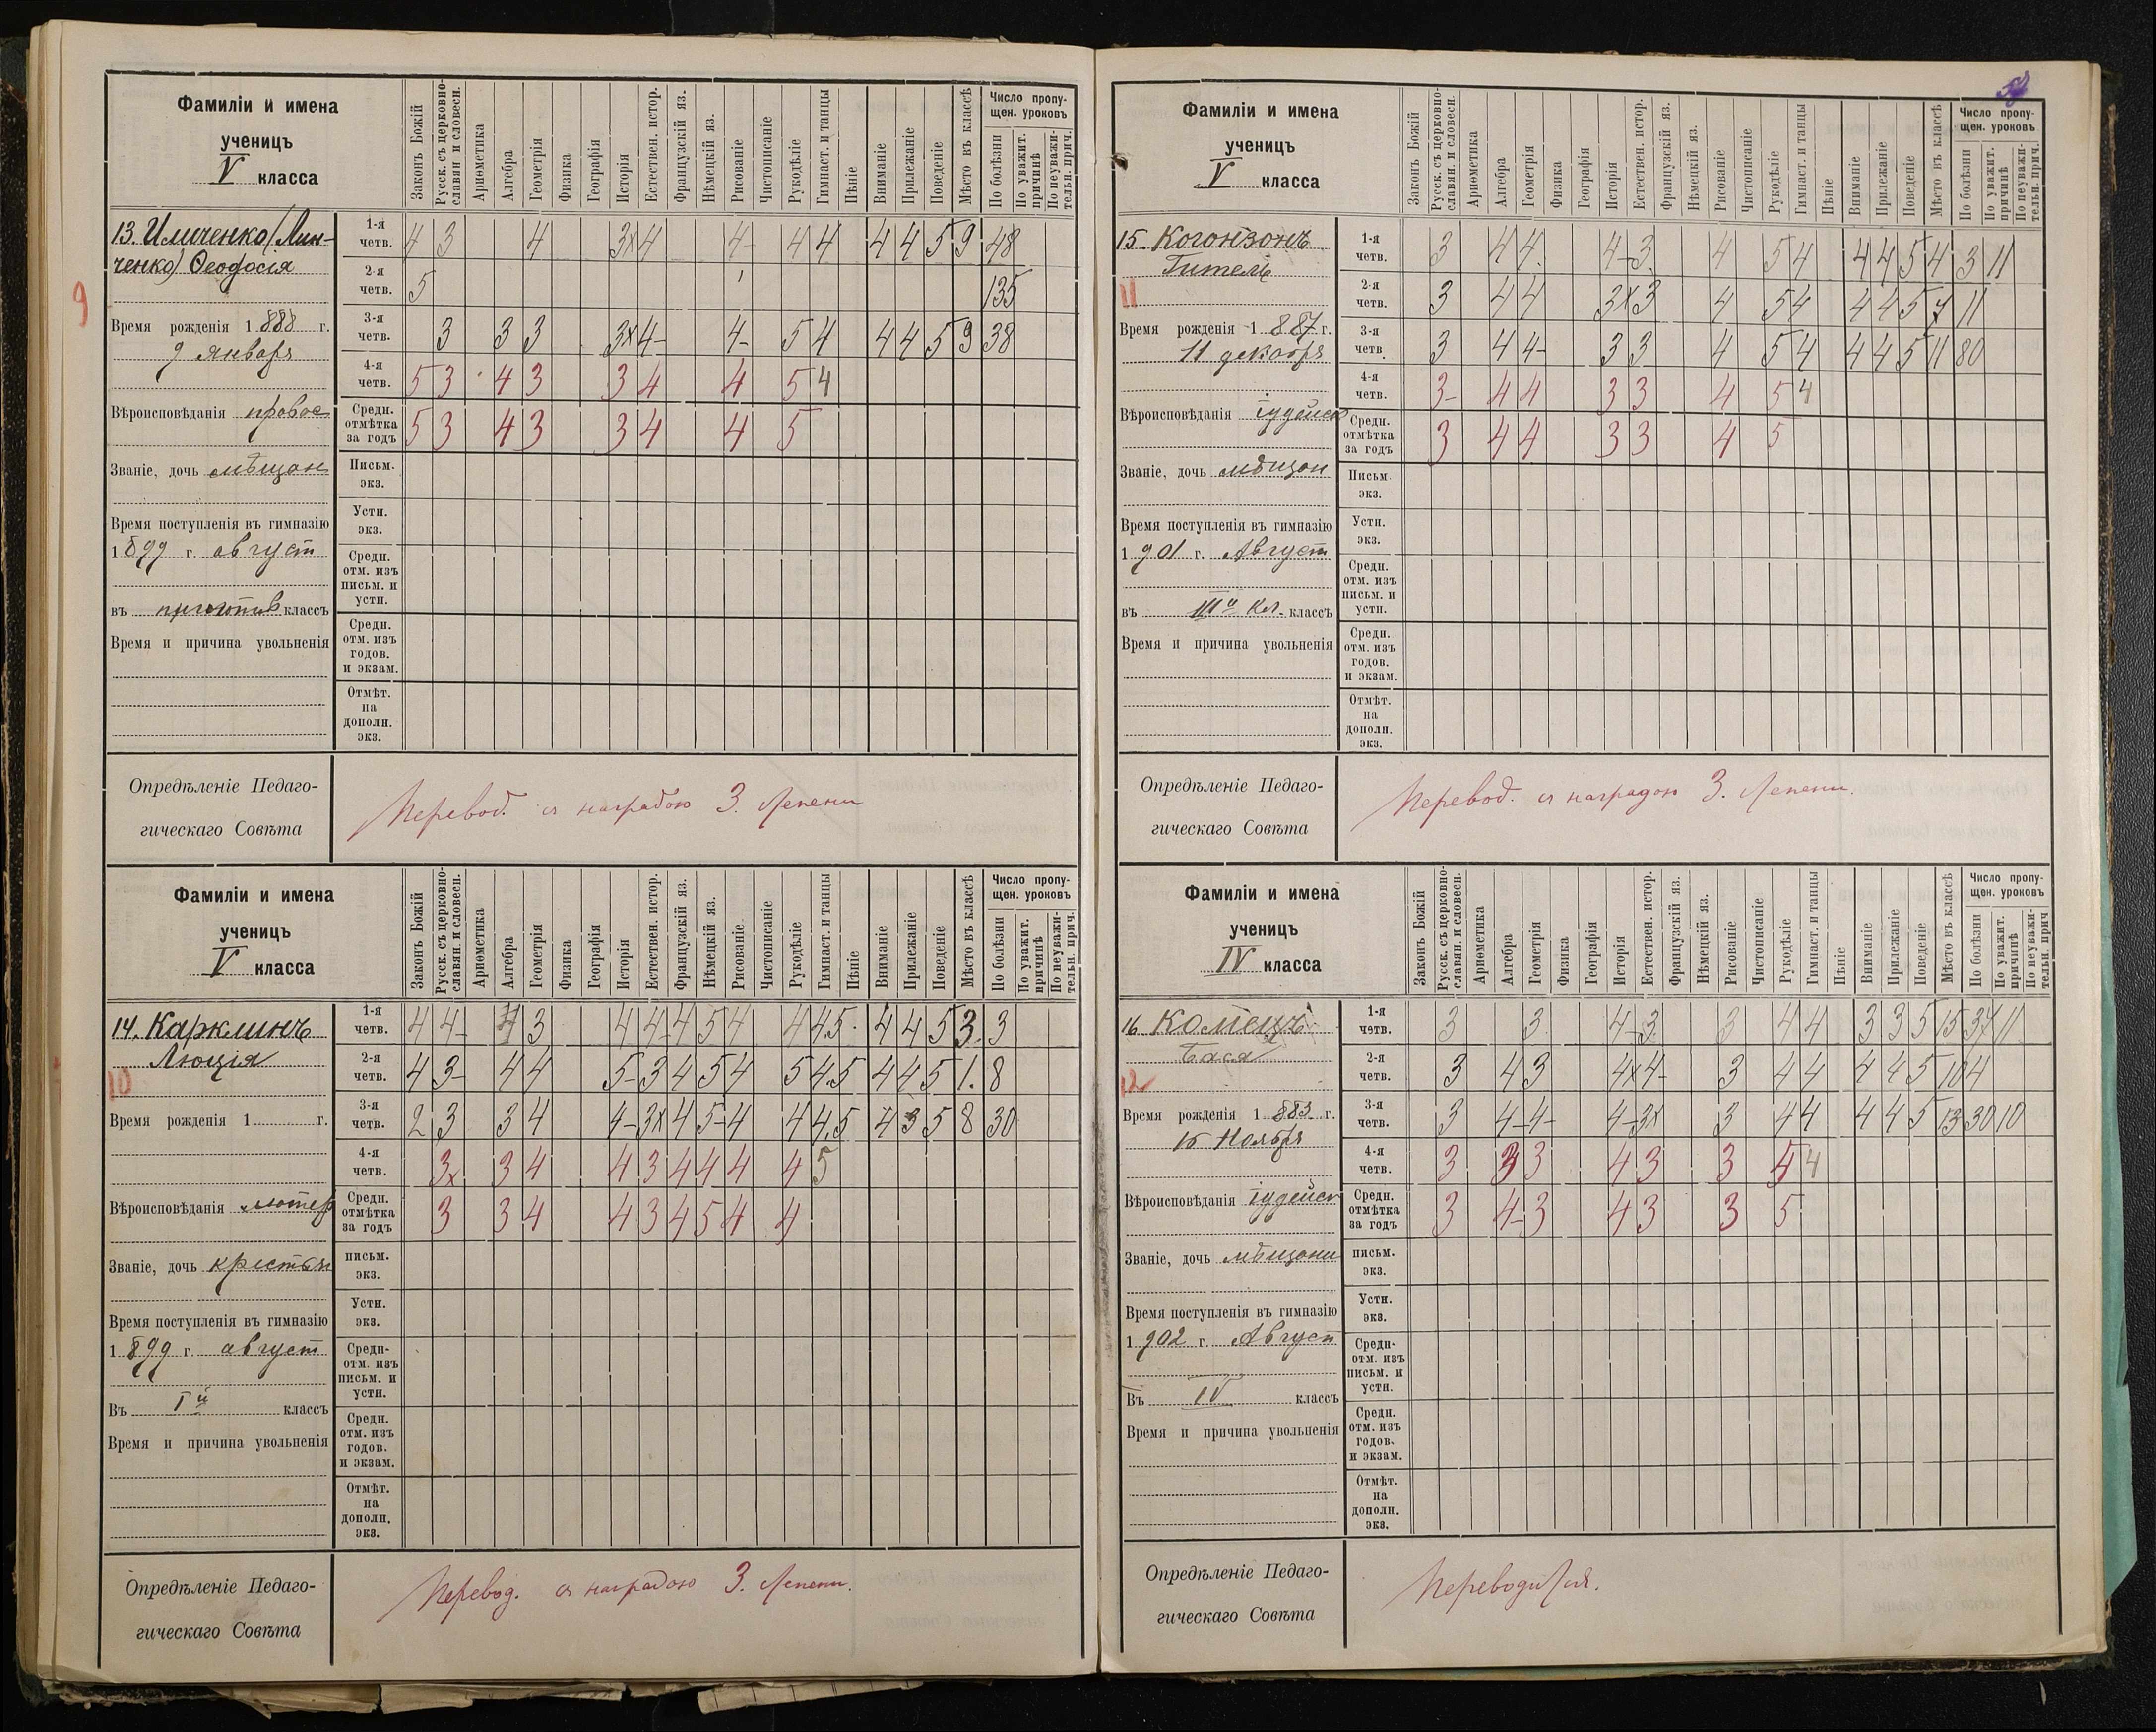 Фамиліи и имена
ученицъ
V класса
Законъ Божій
Русск. съ церковно-славян. и словесн.
Ариѳметика
Алгебра
Геометрія
Физика
Географія
Исторія
Естествен. истор.
Французскій яз.
Нѣмецкій яз.
Рисованіе
Чистописаніе
Рукодѣліе
Гимнаст. и танцы
Пѣніе
Вниманіе
Прилежаніе
Поведеніе
Мѣсто въ классѣ
Число пропу-
щен. уроковъ
По болѣзни
По уважит. причинѣ
По неуважи-тельн. прич.
13. Имченко (Лин-
ченко) Ѳеодосія
9
Время рожденія 1888 г.
9 января
Вѣроисповѣданія правос
Званіе, дочь мѣщан
Время поступленія въ гимназію
1899 г. август
въ приготив классъ
Время и причина увольненія
1-я четв. 4 3 4 3x 4 4- 4 4 4 4 5 9 48
2-я четв. 5 135
3-я четв. 3 3 3 3x 4- 4- 5 4 4 4 5 9 38
4-я четв. 5 3 4 3 3 4 4 5 4
Средн. отмѣтка за годъ 5 3 4 3 3 4 4 5
Письм. экз.
Устн. экз.
Средн. отм. изъ письм. и устн.
Средн. отм. изъ годов. и экзам.
Отмѣт. на дополн. экз.
Опредѣленіе Педаго-
гическаго Совѣта
Перевод. съ наградою 3. степени
Фамиліи и имена
ученицъ
V класса
Законъ Божій
Русск. съ церковно-славян. и словесн.
Ариѳметика
Алгебра
Геометрія
Физика
Географія
Исторія
Естествен. истор.
Французскій яз.
Нѣмецкій яз.
Рисованіе
Чистописаніе
Рукодѣліе
Гимнаст. и танцы
Пѣніе
Вниманіе
Прилежаніе
Поведеніе
Мѣсто въ классѣ
Число пропу-
щен. уроковъ
По болѣзни
По уважит. причинѣ
По неуважи-тельн. прич.
14. Карклинъ
Люція
10
Время рожденія 1 г.
Вѣроисповѣданія лютер
Званіе, дочь крестьян
Время поступленія въ гимназію
1899 г. август
Въ Iй классъ
Время и причина увольненія
1-я четв. 4 4- 4 3 4 4- 4 5 4 4 4 5 4 4 5 3. 3
2-я четв. 4 3- 4 4 5- 3 4 5 4 5 4 5 4 4 5 1. 8
3-я четв. 2 3 3 4 4- 3x 4 5- 4 4 4 5 4 3 5 8 30
4-я четв. 3x 3 4 4 3 4 4 4 4 5
Средн. отмѣтка за годъ 3 3 4 4 3 4 5 4 4
письм. экз.
Устн. экз.
Средн- отм. изъ письм. и устн.
Средн. отм. изъ годов. и экзам.
Отмѣт. на дополн. экз.
Опредѣленіе Педаго-
гическаго Совѣта
Перевод. съ наградою 3. степени.
Фамиліи и имена
ученицъ
V класса
Законъ Божій
Русск. съ церковно-славян. и словесн.
Ариѳметика
Алгебра
Геометрія
Физика
Географія
Исторія
Естествен. истор.
Французскій яз.
Нѣмецкій яз.
Рисованіе
Чистописаніе
Рукодѣліе
Гимнаст. и танцы
Пѣніе
Вниманіе
Прилежаніе
Поведеніе
Мѣсто въ классѣ
Число пропу-
щен. уроковъ
По болѣзни
По уважит. причинѣ
По неуважи-тельн. прич.
15. Когонзонъ
Гитель
11
Время рожденія 1887 г.
11 декабря
Вѣроисповѣданія іудейск
Званіе, дочь мѣщан
Время поступленія въ гимназію
1901 г. Август
въ IIIй кл. классъ
Время и причина увольненія
1-я четв. 3 4 4. 4- 3. 4 5 4 4 4 5 4 3 11
2-я четв. 3 4 4 3x 3 4 5 4 4 4 5 7 11
3-я четв. 3 4 4- 3 3 4 5 4 4 4 5 11 80
4-я четв. 3- 4 4 3 3 4 5 4
Средн. отмѣтка за годъ 3 4 4 3 3 4 5
Письм. экз.
Устн. экз.
Средн. отм. изъ письм. и устн.
Средн. отм. изъ годов. и экзам.
Отмѣт. на дополн. экз.
Опредѣленіе Педаго-
гическаго Совѣта
Перевод. съ наградою 3. степени.
Фамиліи и имена
ученицъ
IV класса
Законъ Божій
Русск. съ церковно-славян. и словесн.
Ариѳметика
Алгебра
Геометрія
Физика
Географія
Исторія
Естествен. истор.
Французскій яз.
Нѣмецкій яз.
Рисованіе
Чистописаніе
Рукодѣліе
Гимнаст. и танцы
Пѣніе
Вниманіе
Прилежаніе
Поведеніе
Мѣсто въ классѣ
Число пропу-
щен. уроковъ
По болѣзни
По уважит. причинѣ
По неуважи-тельн. прич
16 Комецъ
Бася
12
Время рожденія 1883 г.
15 Ноября
Вѣроисповѣданія іудейск
Званіе, дочь мѣщани
Время поступленія въ гимназію
1902 г. Август
Въ IV классъ
Время и причина увольненія
1-я четв. 3 3. 4- 3 3 4 4 3 3 5 15 37 11
2-я четв. 3 4 3 4x 4- 3 4 4 4 4 5 10 4
3-я четв. 3 4- 4- 4- 3x 3 4 4 4 4 5 13 30 10
4-я четв. 3 3 3 4 3 3 5 4
Средн. отмѣтка за годъ 3 4- 3 4 3 3 5
письм. экз.
Устн. экз.
Средн- отм. изъ письм. и устн.
Средн. отм. изъ годов- и экзам.
Отмѣт. на дополн. экз.
Опредѣленіе Педаго-
гическаго Совѣта
Переводится.